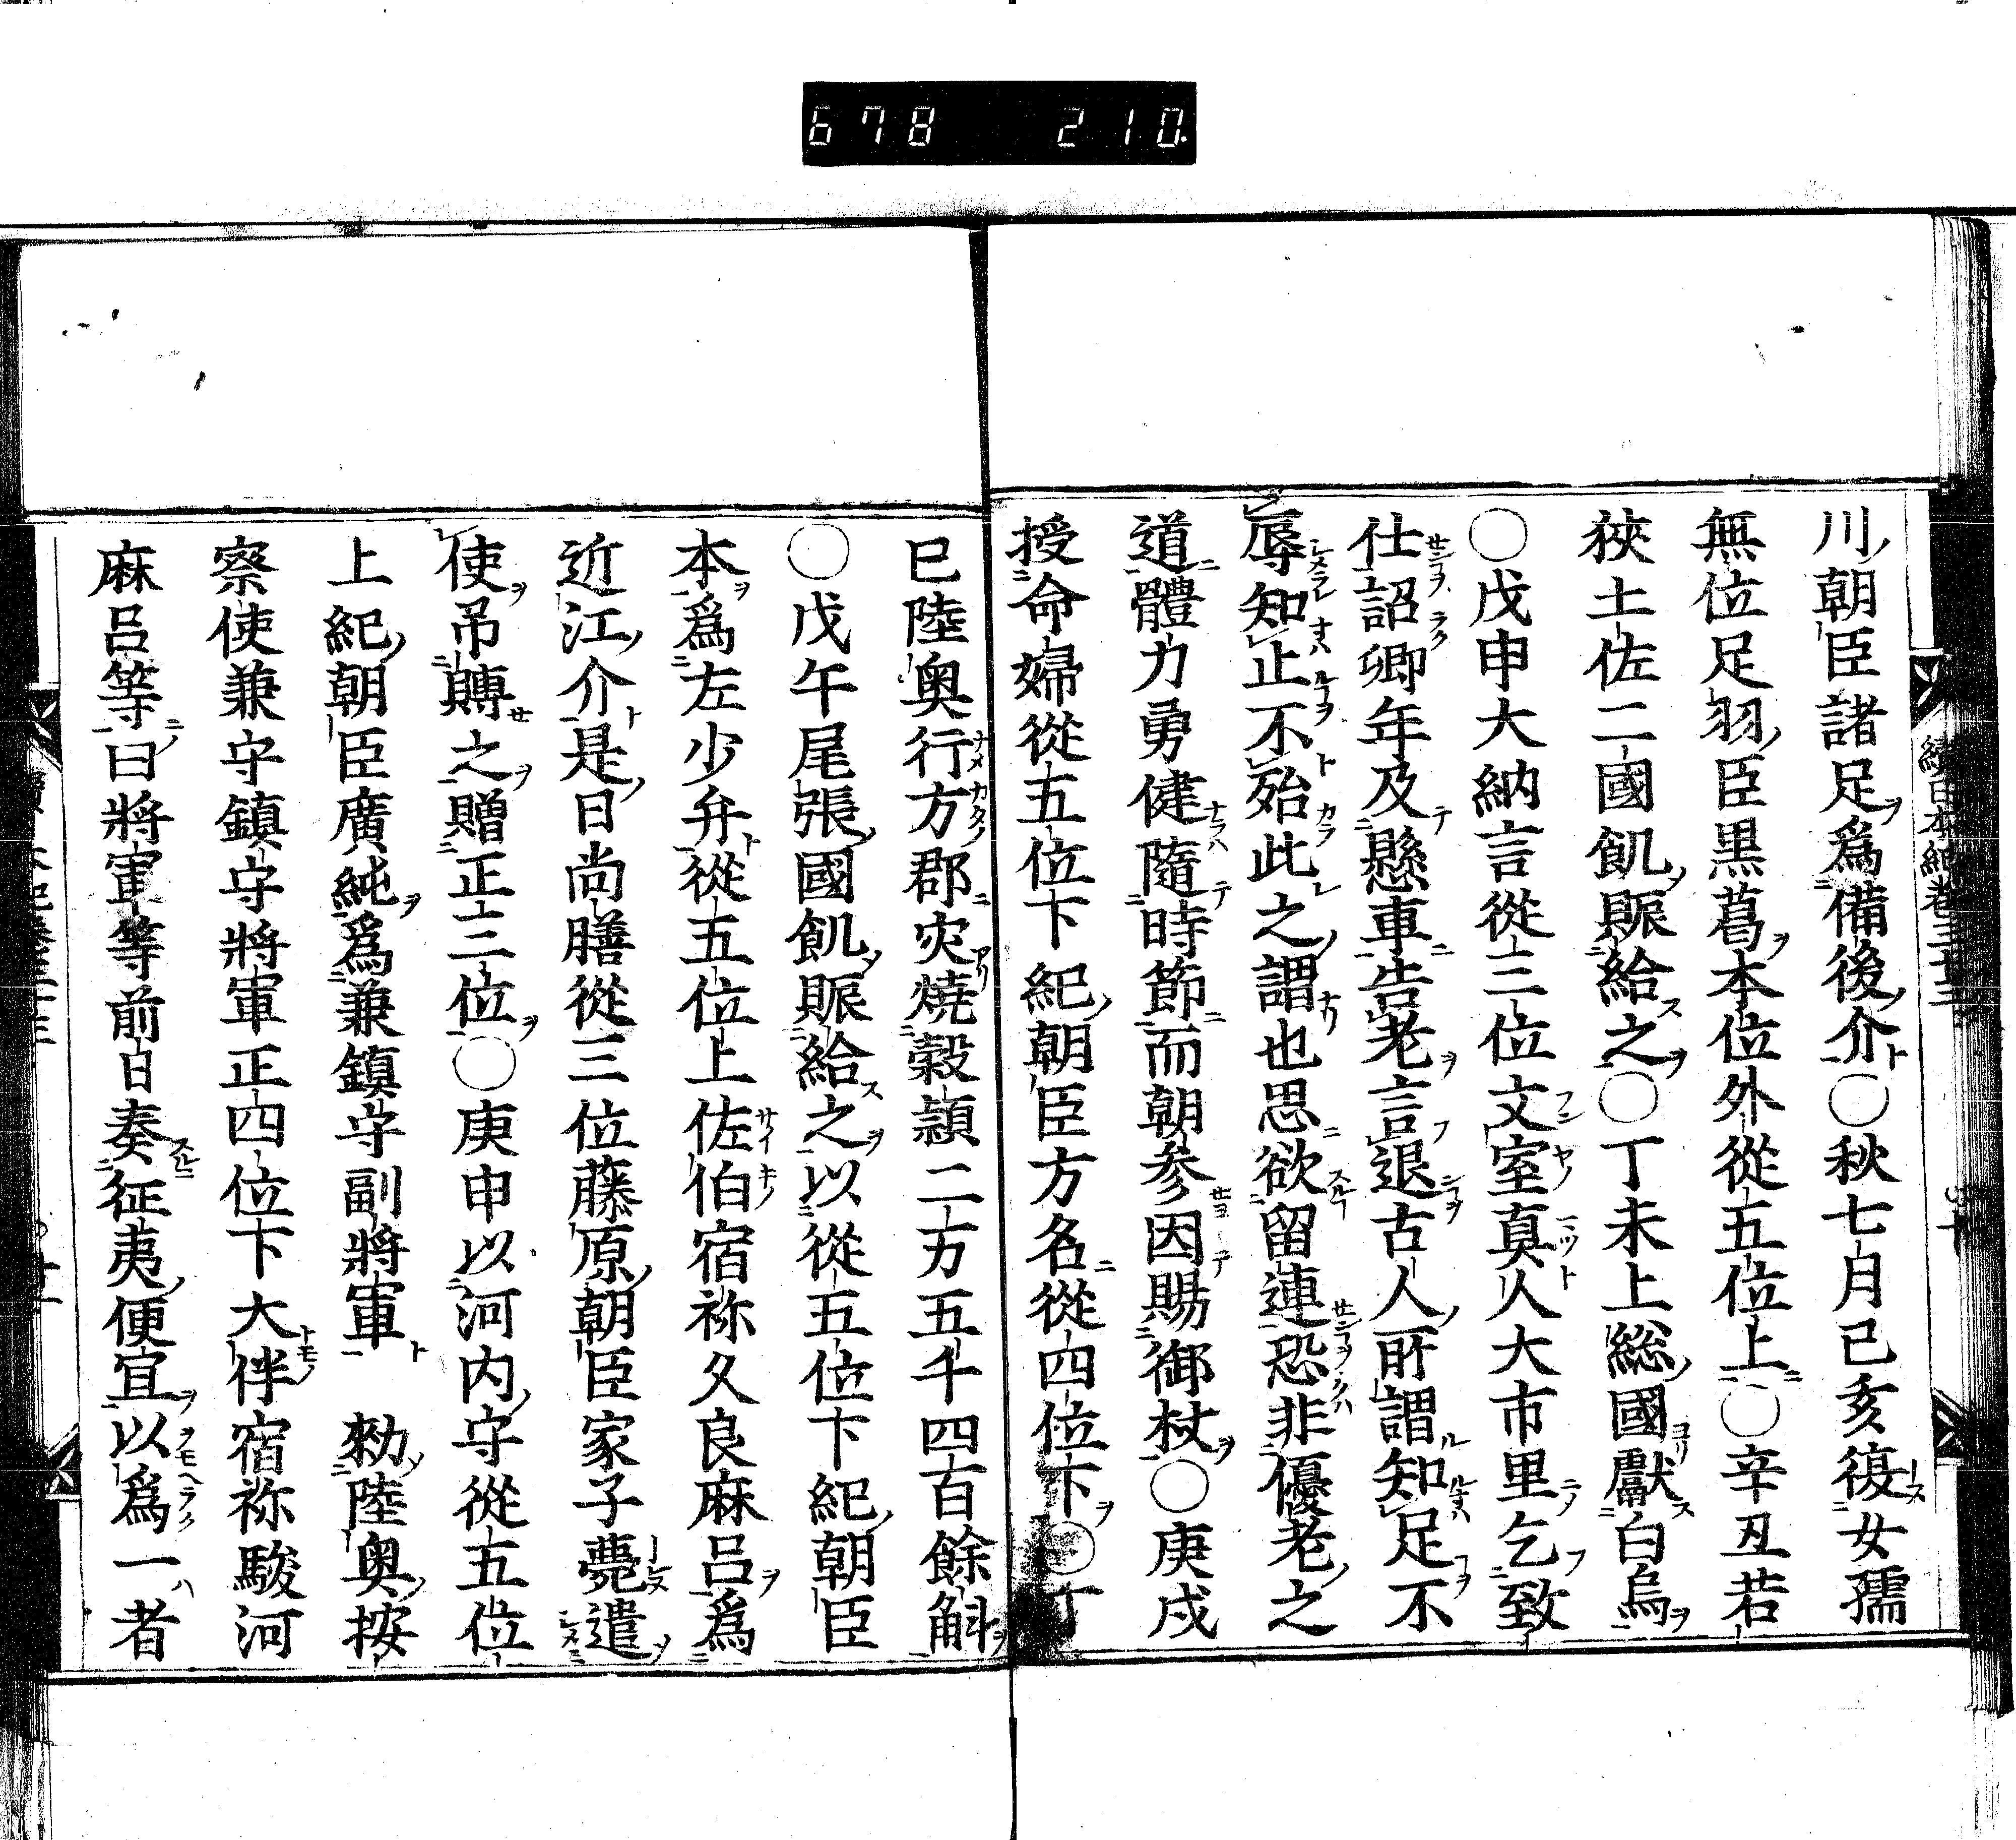 678 210
川朝臣諸足爲備後介〇秋七月己亥復女孺
無位足羽臣黒葛本位外從五位上〇辛丑若
狹土佐二國飢賑給之〇丁未上総國獻白烏
〇戊申大納言從三位文室真人大市里乞致
仕詔卿年及懸車告老言退古人所謂知足不
辱知止不殆此之謂也思欲留連恐非優老之
道體力勇健隨時節而朝参因賜御杖〇庚戌
授命婦從五位下紀朝臣方名從四位下〇丁
巳陸奥行方郡灾燒穀頴二万五千四百餘斛
〇戊午尾張國飢賑給之以從五位下紀朝臣
本爲左少弁從五位上佐伯宿祢久良麻呂爲
近江介是日尚膳從三位藤原朝臣家子薨遣
使吊賻之贈正三位〇庚申以河内守從五位
上紀朝臣廣純爲兼鎮守副將軍 勑陸奥按
察使兼守鎮守將軍正四位下大伴宿祢駿河
麻呂等曰將軍等前日奏征夷便宜以爲一者